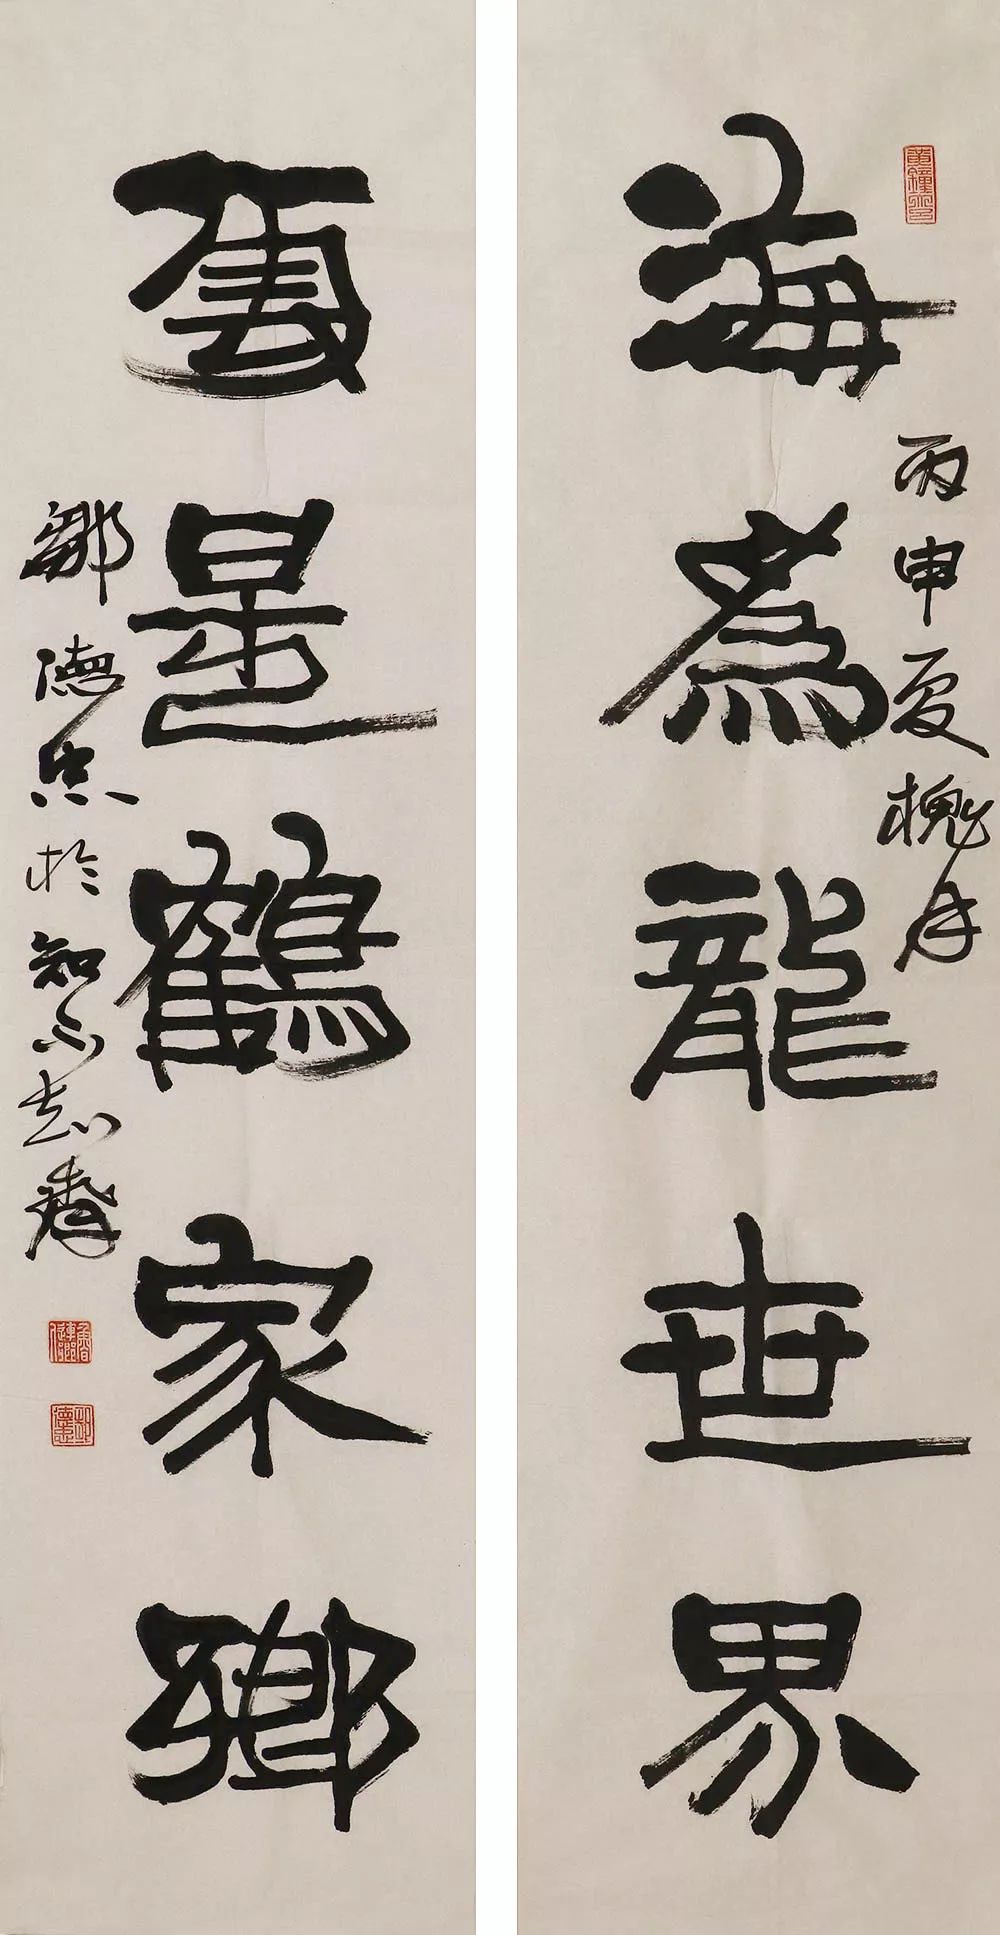 海為龍世界
丙申夏槐月
雲是鶴家鄉
鄒德忠於知不齋